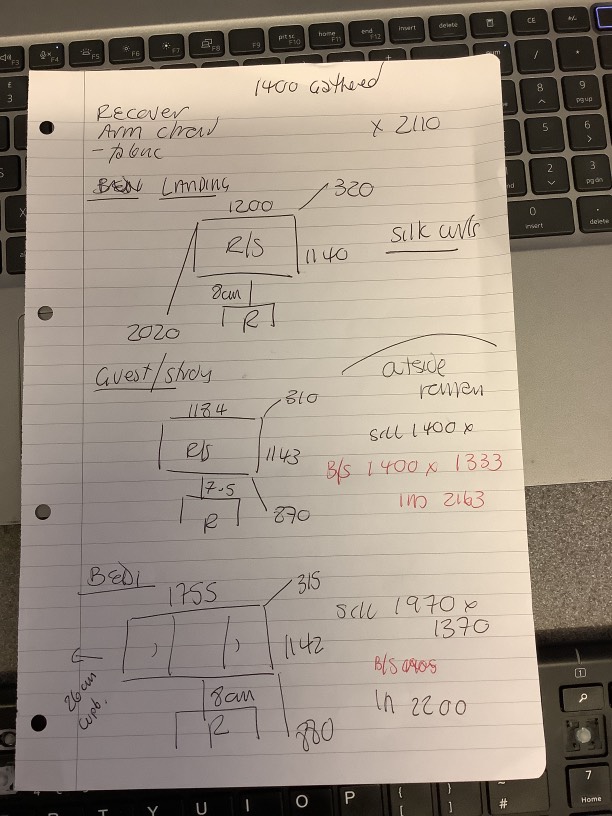 1400 Gathered
x 2110
RECOVER
Arm chair
LANDING
1200
320
R/S
1140
8cm
R
2020
silk
Guest/study
1184
310
R/S
1143
7.5
R
870
sell 1400 x
B/S 1400 x 1333
2163
BED1
1755
315
1142
8cm
R
880
26cm
cupb.
sell 1970 x
1370
B/S
2200
prt sc
F10
home
F11
end
F12
insert
delete
CE
F3
F4
F5
F6
F7
F8
F9
E
3
/
*
8
9
pg up
5
6
2
3
pg dn
0
insert
.
delete
7
Home
T
Y
U
I
O
P
{
[
}
]
~
#